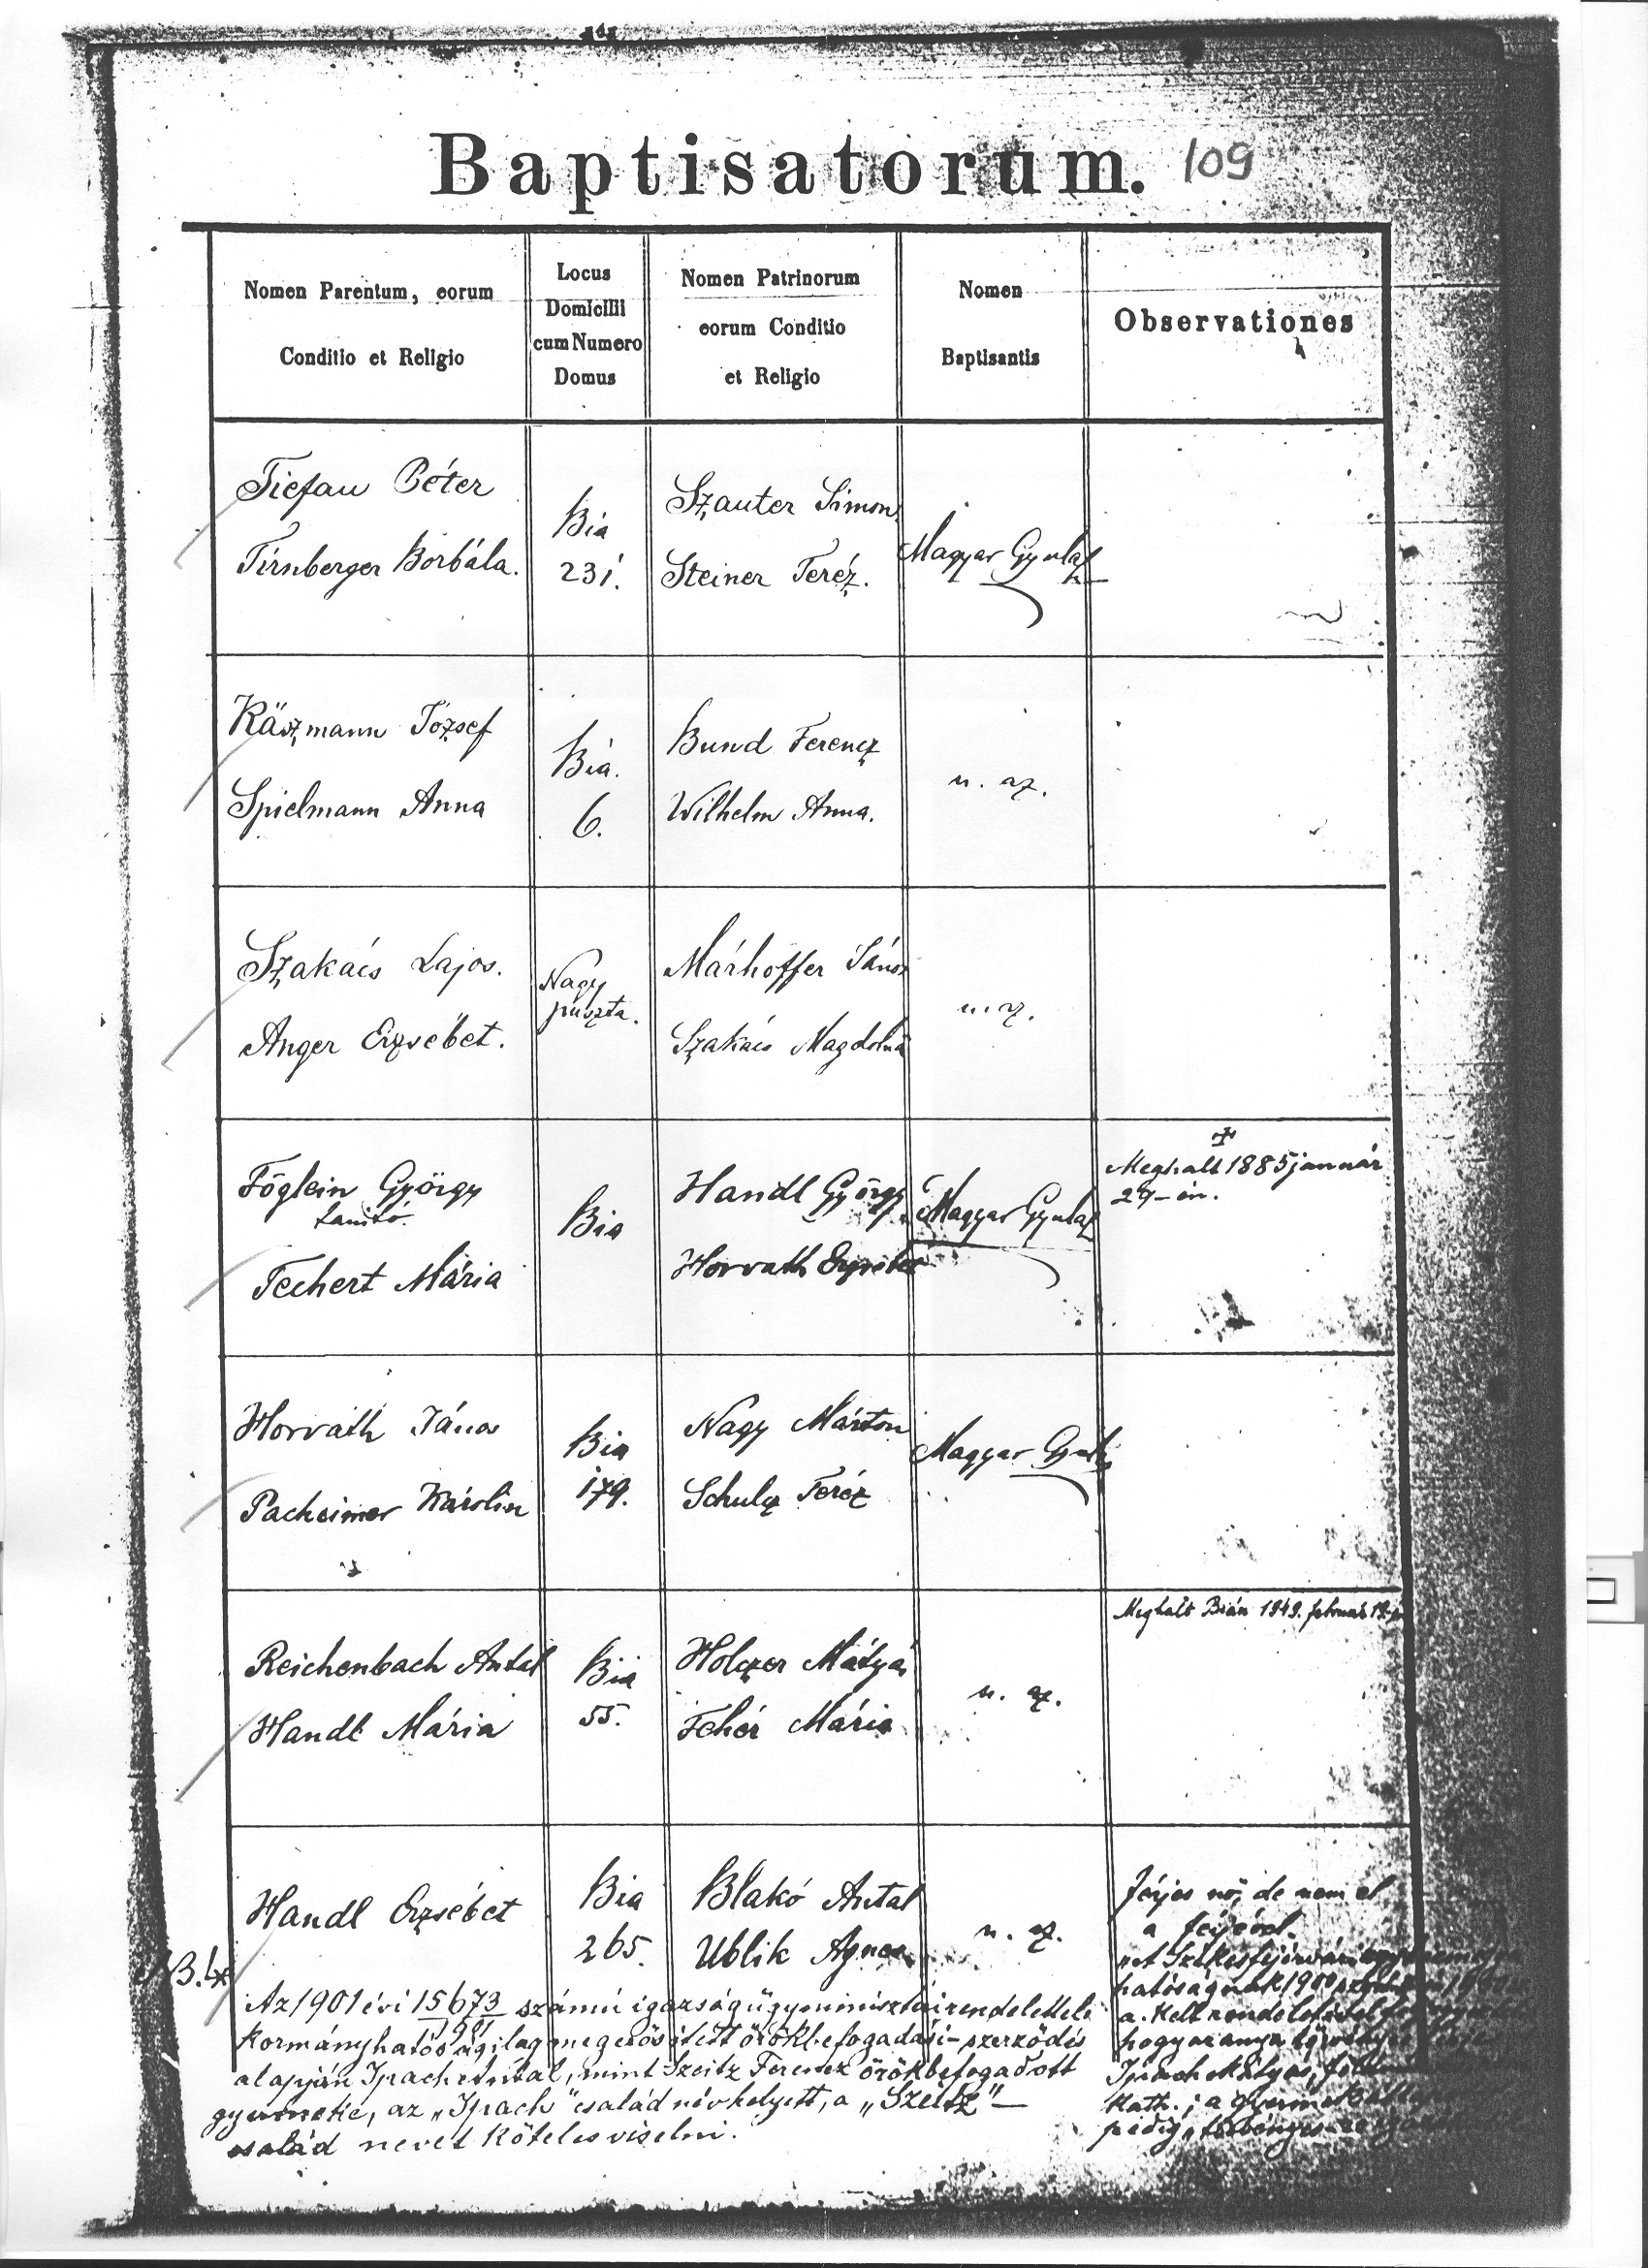 Baptisatorum. 109
Nomen Parentum, eorum
Conditio et Religio
Locus
Domicilii
cum Numero
Domus
Nomen Patrinorum
eorum Conditio
et Religio
Nomen
Baptisantis
Observationes
Tiefau Péter
Tirnberger Borbála.
Bia
231.
Szauter Simon
Steiner Teréz.
Magyar Gyula
Käszmann József
Spielmann Anna
Bia.
6.
Bund Ferencz
Wilhelm Anna.
u. az.
Szakács Lajos.
Anger Erzsébet.
Nagy
puszta.
Márhoffer János
Szakács Magdolna
u. az.
Föglein György
tanító.
Techert Mária
Bia
Handl György
Horváth Erzsébet
Magyar Gyula
Meghalt 1885 január
29-én.
Horváth János
Pacheimer Karolin
Bia
179.
Nagy Márton
Schulcz Teréz
Magyar Gyula
Reichenbach Antal
Handl Mária
Bia
55.
Holczer Mátyás
Fehér Mária
u. az.
Meghalt Bián 1949. február
Handl Erzsébet
Bia
265.
Blakó Antal
Ublik Agnes
u. az.
férjes nő, de nem él
a férjével.
"A Székesfejérvári
hatóságnak
a. kelt rendelete
hogy az anya
Iprach Mátyás,
kath.; a gyermek
pedig, törvényes
NB.
Az 1901 évi 15673 számú igazságügyminiszteri rendelettel
1901
kormányhatóságilag megerősített örökbefogadási-szerződés
alapján Iprach Antal, mint Szeitz Ferencz örökbefogadott
gyermeke, az "Iprach" család név helyett, a "Szeitz"-
család nevét köteles viselni.